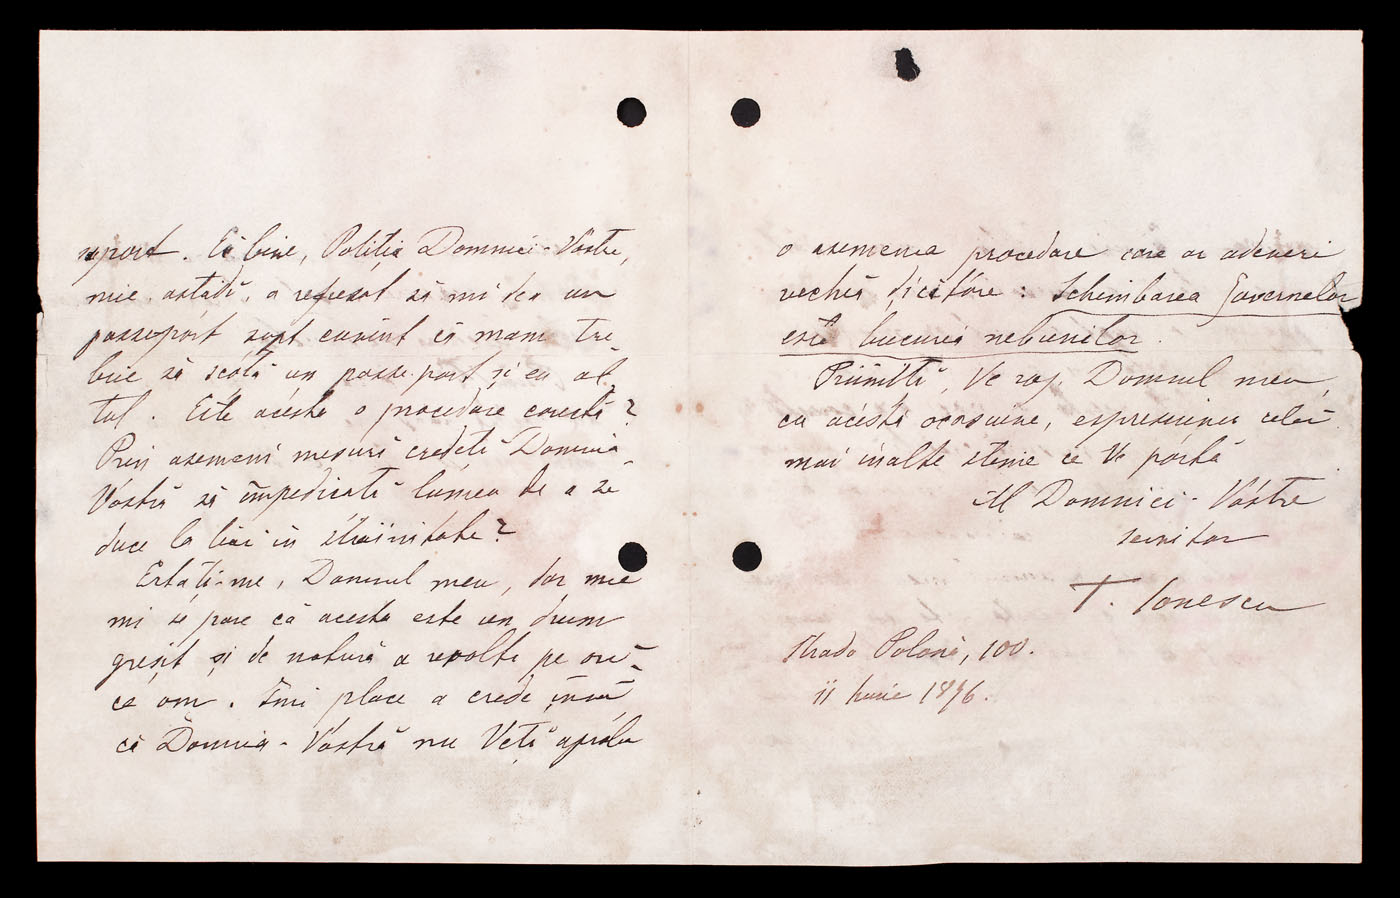 sport. Ei bine, Poliția Domniei-Vóstre,
mie, astădi, a refusat să 'mi dea un
passeport supt cuvînt că mama tre-
bue să scótă un passe-port și eu al-
tul. Este acésta o procedare corectă?
Prin asemeni mesuri credeți Domnia-
Vóstră să împedicați lumea de a se
duce la băi în străinătate?
Ertați-me, Domnul meu, dar mie
mi se pare că acesta este un drum
greșit și de natură a revolta pe ori-
ce om. Îmi place a crede însă
că Domnia-Vóstră nu Veți aproba
o asemenea procedare care ar adeveri
vechia dicătóre: Schimbarea Guvernelor
este bucuria nebunilor.
Priimiți, Ve rog, Domnul meu,
cu acéstă ocasiune, espresiunea celei
mai înalte stime ce Ve pórtă
Al Domniei-Vóstre
servitor
T. Ionescu
Strada Polonă, 100.
11 Iunie 1896.